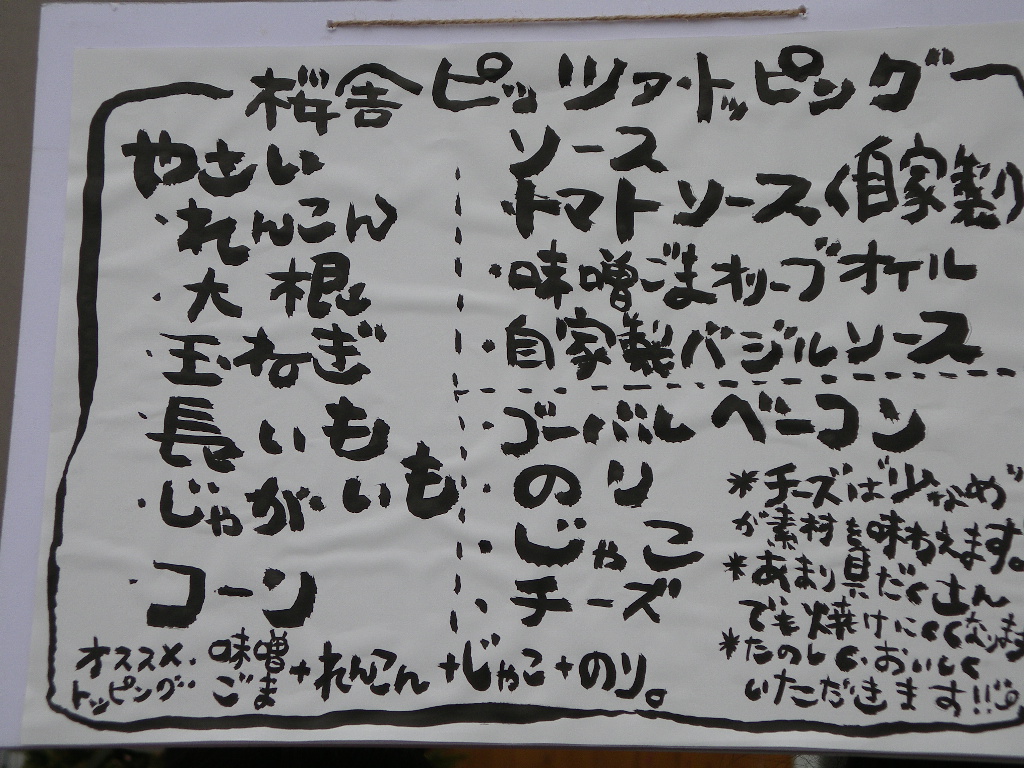 桜舎ピッツァ・トッピング
やさい
・れんこん
・大根
・玉ねぎ
長いも
・じゃがいも
・コーン
ソース
トマトソース(自家製)
・味噌ごまオリーブオイル
・自家製バジルソース
・ゴーバルベーコン
・のり
・じゃこ
・チーズ
*チーズは少なめ
が素材を味わえます。
*あまり具だくさん
でも焼けにくくなります
*たのしく、おいしく
いただきます!!
オススメ・
トッピング・
味噌
ごま
+れんこん+じゃこ+のり。